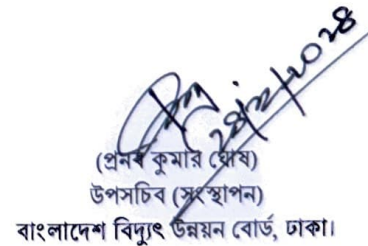 ২৪/১২/২০২৪
(প্রনব কুমার ঘোষ)
উপসচিব (সংস্থাপন)
বাংলাদেশ বিদ্যুৎ উন্নয়ন বোর্ড, ঢাকা।